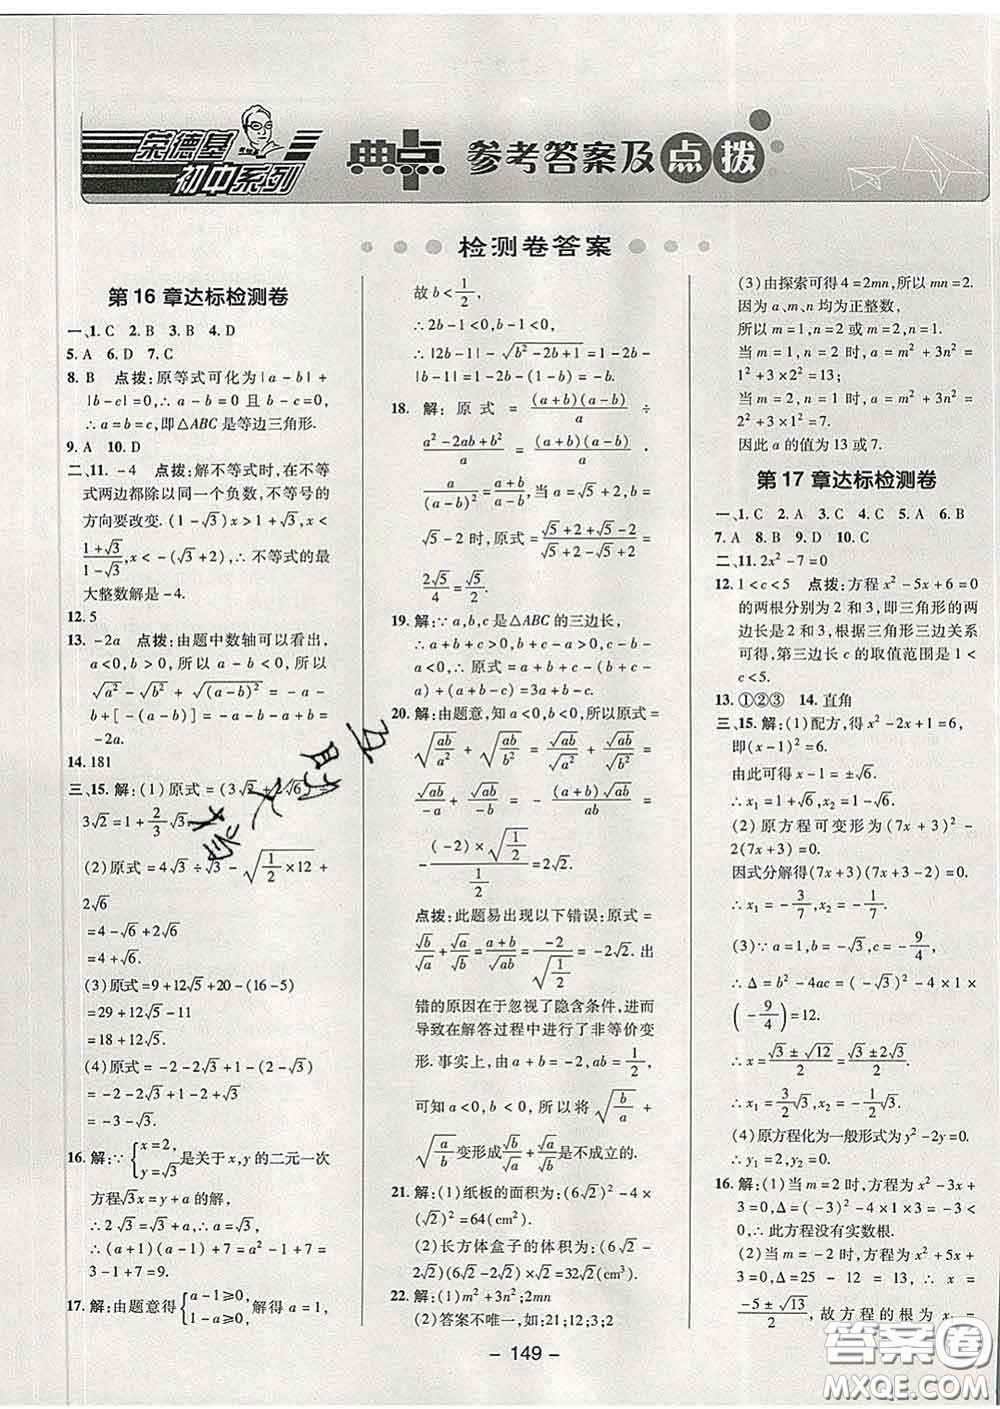 荣德基
初中系列
典点 参考答案及点拨
检测卷答案
第 16 章达标检测卷
一、1. C 2. B 3. B 4. D
5. A 6. D 7. C
8. B 点拨:原等式可化为|a-b|+
|b-c|=0,∴a-b=0 且 b-c=0,
∴a=b=c,即△ABC是等边三角形.
9. A 10. D
二、11. -4 点拨:解不等式时,在不等
式两边都除以同一个负数,不等号的
方向要改变. (1-√3)x>1+√3,x<
(1+√3)/(1-√3),x<-(√3+2),∴不等式的最
大整数解是-4.
12. 5
13. -2a 点拨:由题中数轴可以看出,
a<0,b>0,所以a-b<0,所以
√a²-√b²+√(a-b)²=-a-
b+[-(a-b)]=-a-b-a+b=
-2a.
14. 181
三、15. 解:(1)原式=(3√2+2√6)÷
3√2=1+2/3√3.
(2)原式=4√3÷√3-√(1/2×12)+
2√6
=4-√6+2√6
=4+√6.
(3)原式=9+12√5+20-(12-1)
=29+12√5-11
=18+12√5.
(4)原式=-2√3+1-(2-√3)
=-2-2√3+1-2+√3
=-3-√3.
16. 解:∵{x=2, y=√3 是关于x,y的二元一次
方程√3x=y+a的解,
∴2√3=√3+a,∴a=√3,
∴(a+1)(a-1)+7=a²-1+7=
3-1+7=9.
17. 解:由题意得{a-1≥0, 1-a≥0, 解得a=1,
故b<1/2,
∴2b-1<0,b-1<0,
∴|2b-1|-√(b²-2b+1)=1-2b-
|b-1|=1-2b-(1-b)=-b.
18. 解:原式=(a+b)(a-b)/a÷
(a²-2ab+b²)/a=(a+b)(a-b)/a·
a/(a-b)²=(a+b)/(a-b),当a=√5+2,b=
√5-2时,原式=(√5+2+√5-2)/(√5+2-√5+2)=
2√5/4=√5/2.
19. 解:∵a,b,c是△ABC的三边长,
∴a+b+c>0,b+c-a>0,c-b-
a<0,∴原式=a+b+c-(b+c-
a)+(a+b-c)=3a+b-c.
20. 解:由题意,知a<0,b<0,所以原式=
√(ab/a²)+√(ab/b²)=√ab/√a²+√ab/√b²=
√ab/-a+√ab/-b=-(a+b)√ab/ab=
-(-2)×√(1/2)/(1/2)=2√2.
点拨:此题易出现以下错误:原式=
√b/√a+√a/√b=(a+b)/√ab=-2/√(1/2)=-2√2. 出
错的原因在于忽视了隐含条件,进而
导致在解答过程中进行了非等价变
形.事实上,由a+b=-2,ab=1/2,
可知a<0,b<0,所以将√(b/a)+
√(a/b)变形成√b/√a+√a/√b不成立.
21. 解:(1)纸板的面积为:(6√2)²-4×
(√2)²=64(cm²).
(2)长方体盒子的体积为:(6√2-
2√2)(6√2-2√2)×√2=32√2(cm³).
22. 解:(1)m²+3n²;2mn
(2)答案不唯一,如:21;12;3;2
(3)由探索可得4=2mn,mn=2.
因为a、m、n均为正整数,
所以m=1,n=2或m=2,n=1.
当m=1,n=2时,a=m²+3n²=
1²+3×2²=13;
当m=2,n=1时,a=m²+3n²=
2²+3×1²=7.
因此a的值为13或7.
第 17 章达标检测卷
一、1. C 2. A 3. C 4. C 5. A 6. B
7. A 8. B 9. D 10. D
二、11. 2x²-7=0
12. 1<c<5 点拨:方程x²-5x+6=0
的两根分别为2和3,即三角形的两
边长是2和3,根据三角形三边关系
可得,第三边长c的取值范围是1<
c<5.
13. ①②③ 14. 直角
三、15. 解:(1)配方,得x²-2x+1=6,
即(x-1)²=6.
由此可得x-1=±√6.
∴x₁=1+√6,x₂=1-√6.
(2)原方程可变形为(7x+3)²-
2(7x+3)=0.
因式分解得(7x+3)(7x+3-2)=0.
∴x₁=-3/7,x₂=-1/7.
(3)∵a=1,b=-√3,c=-9/4,
∴Δ=b²-4ac=(-√3)²-4×1×
(-9/4)=12.
∴x=(√3±√12)/2=(√3±2√3)/2.
∴x₁=3/2√3,x₂=-√3/2.
(4)原方程化为一般形式为y²-2y=0.
∴y₁=2,y₂=0.
16. 解:(1)当m=2时,方程x²-3x+
3=0,Δ=(-3)²-4×1×3=-3<
0,∴此方程没有实数根.
(2)当m=-2时,方程x²+5x+
3=0,Δ=25-12=13,∴x=
(-5±√13)/2,故方程的根为x₁=
- 149 -
答案圈
MXQE.COM